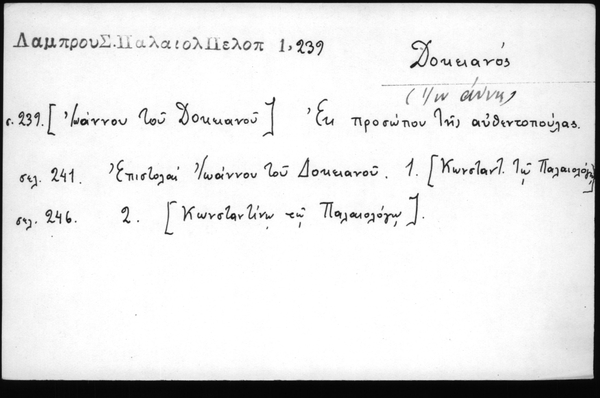 ΛαμπρουΣ.ΠαλαιολΠελοπ 1,239
Δοκειανός
(Ἰωάννης)
σ. 239. [Ἰωάννου τοῦ Δοκειανοῦ] Ἐκ προσώπου τῆς αὐθεντοπούλας.
σελ. 241. Ἐπιστολαὶ Ἰωάννου τοῦ Δοκειανοῦ. 1. [Κωνσταντ. τῷ Παλαιολόγῳ]
σελ. 246. 2. [Κωνσταντίνῳ τῷ Παλαιολόγῳ].